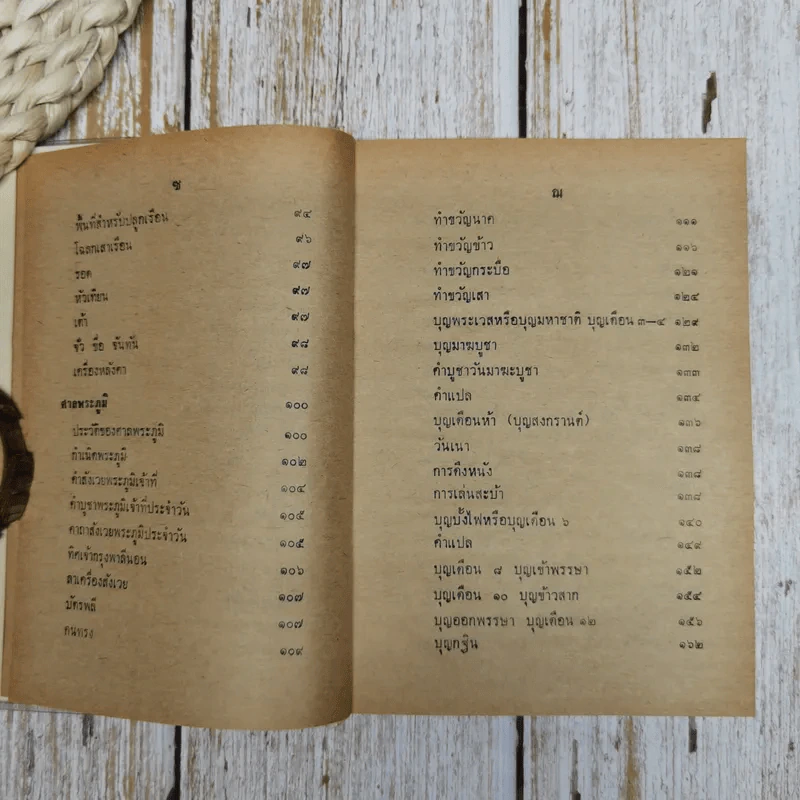 ช
พื้นที่สำหรับปลูกเรือน ๙๔
โฉลกเสาเรือน ๙๖
รอด ๙๗
หัวเทียน ๙๗
เต้า ๙๗
จั่ว ขื่อ จันทัน ๙๘
เครื่องหลังคา ๙๘
ศาลพระภูมิ ๑๐๐
ประวัติของศาลพระภูมิ ๑๐๐
กำเนิดพระภูมิ ๑๐๒
คำสังเวยพระภูมิเจ้าที่ ๑๐๔
คำบูชาพระภูมิเจ้าที่ประจำวัน ๑๐๕
คาถาสังเวยพระภูมิประจำวัน ๑๐๕
ทิศเจ้ากรุงพาลีนอน ๑๐๖
ลาเครื่องสังเวย ๑๐๗
บัตรพลี ๑๐๗
คนทรง ๑๐๙
ฌ
ทำขวัญนาค ๑๑๑
ทำขวัญข้าว ๑๑๖
ทำขวัญกระบือ ๑๒๑
ทำขวัญเสา ๑๒๔
บุญพระเวสหรือบุญมหาชาติ บุญเดือน ๓—๔ ๑๒๙
บุญมาฆบูชา ๑๓๒
คำบูชาวันมาฆะบูชา ๑๓๓
คำแปล ๑๓๔
บุญเดือนห้า (บุญสงกรานต์) ๑๓๖
วันเนา ๑๓๘
การดึงหนัง ๑๓๘
การเล่นสะบ้า ๑๓๘
บุญบั้งไฟหรือบุญเดือน ๖ ๑๔๐
คำแปล ๑๔๙
บุญเดือน ๘ บุญเข้าพรรษา ๑๕๒
บุญเดือน ๑๐ บุญข้าวสาก ๑๕๔
บุญออกพรรษา บุญเดือน ๑๒ ๑๕๖
บุญกฐิน ๑๖๒